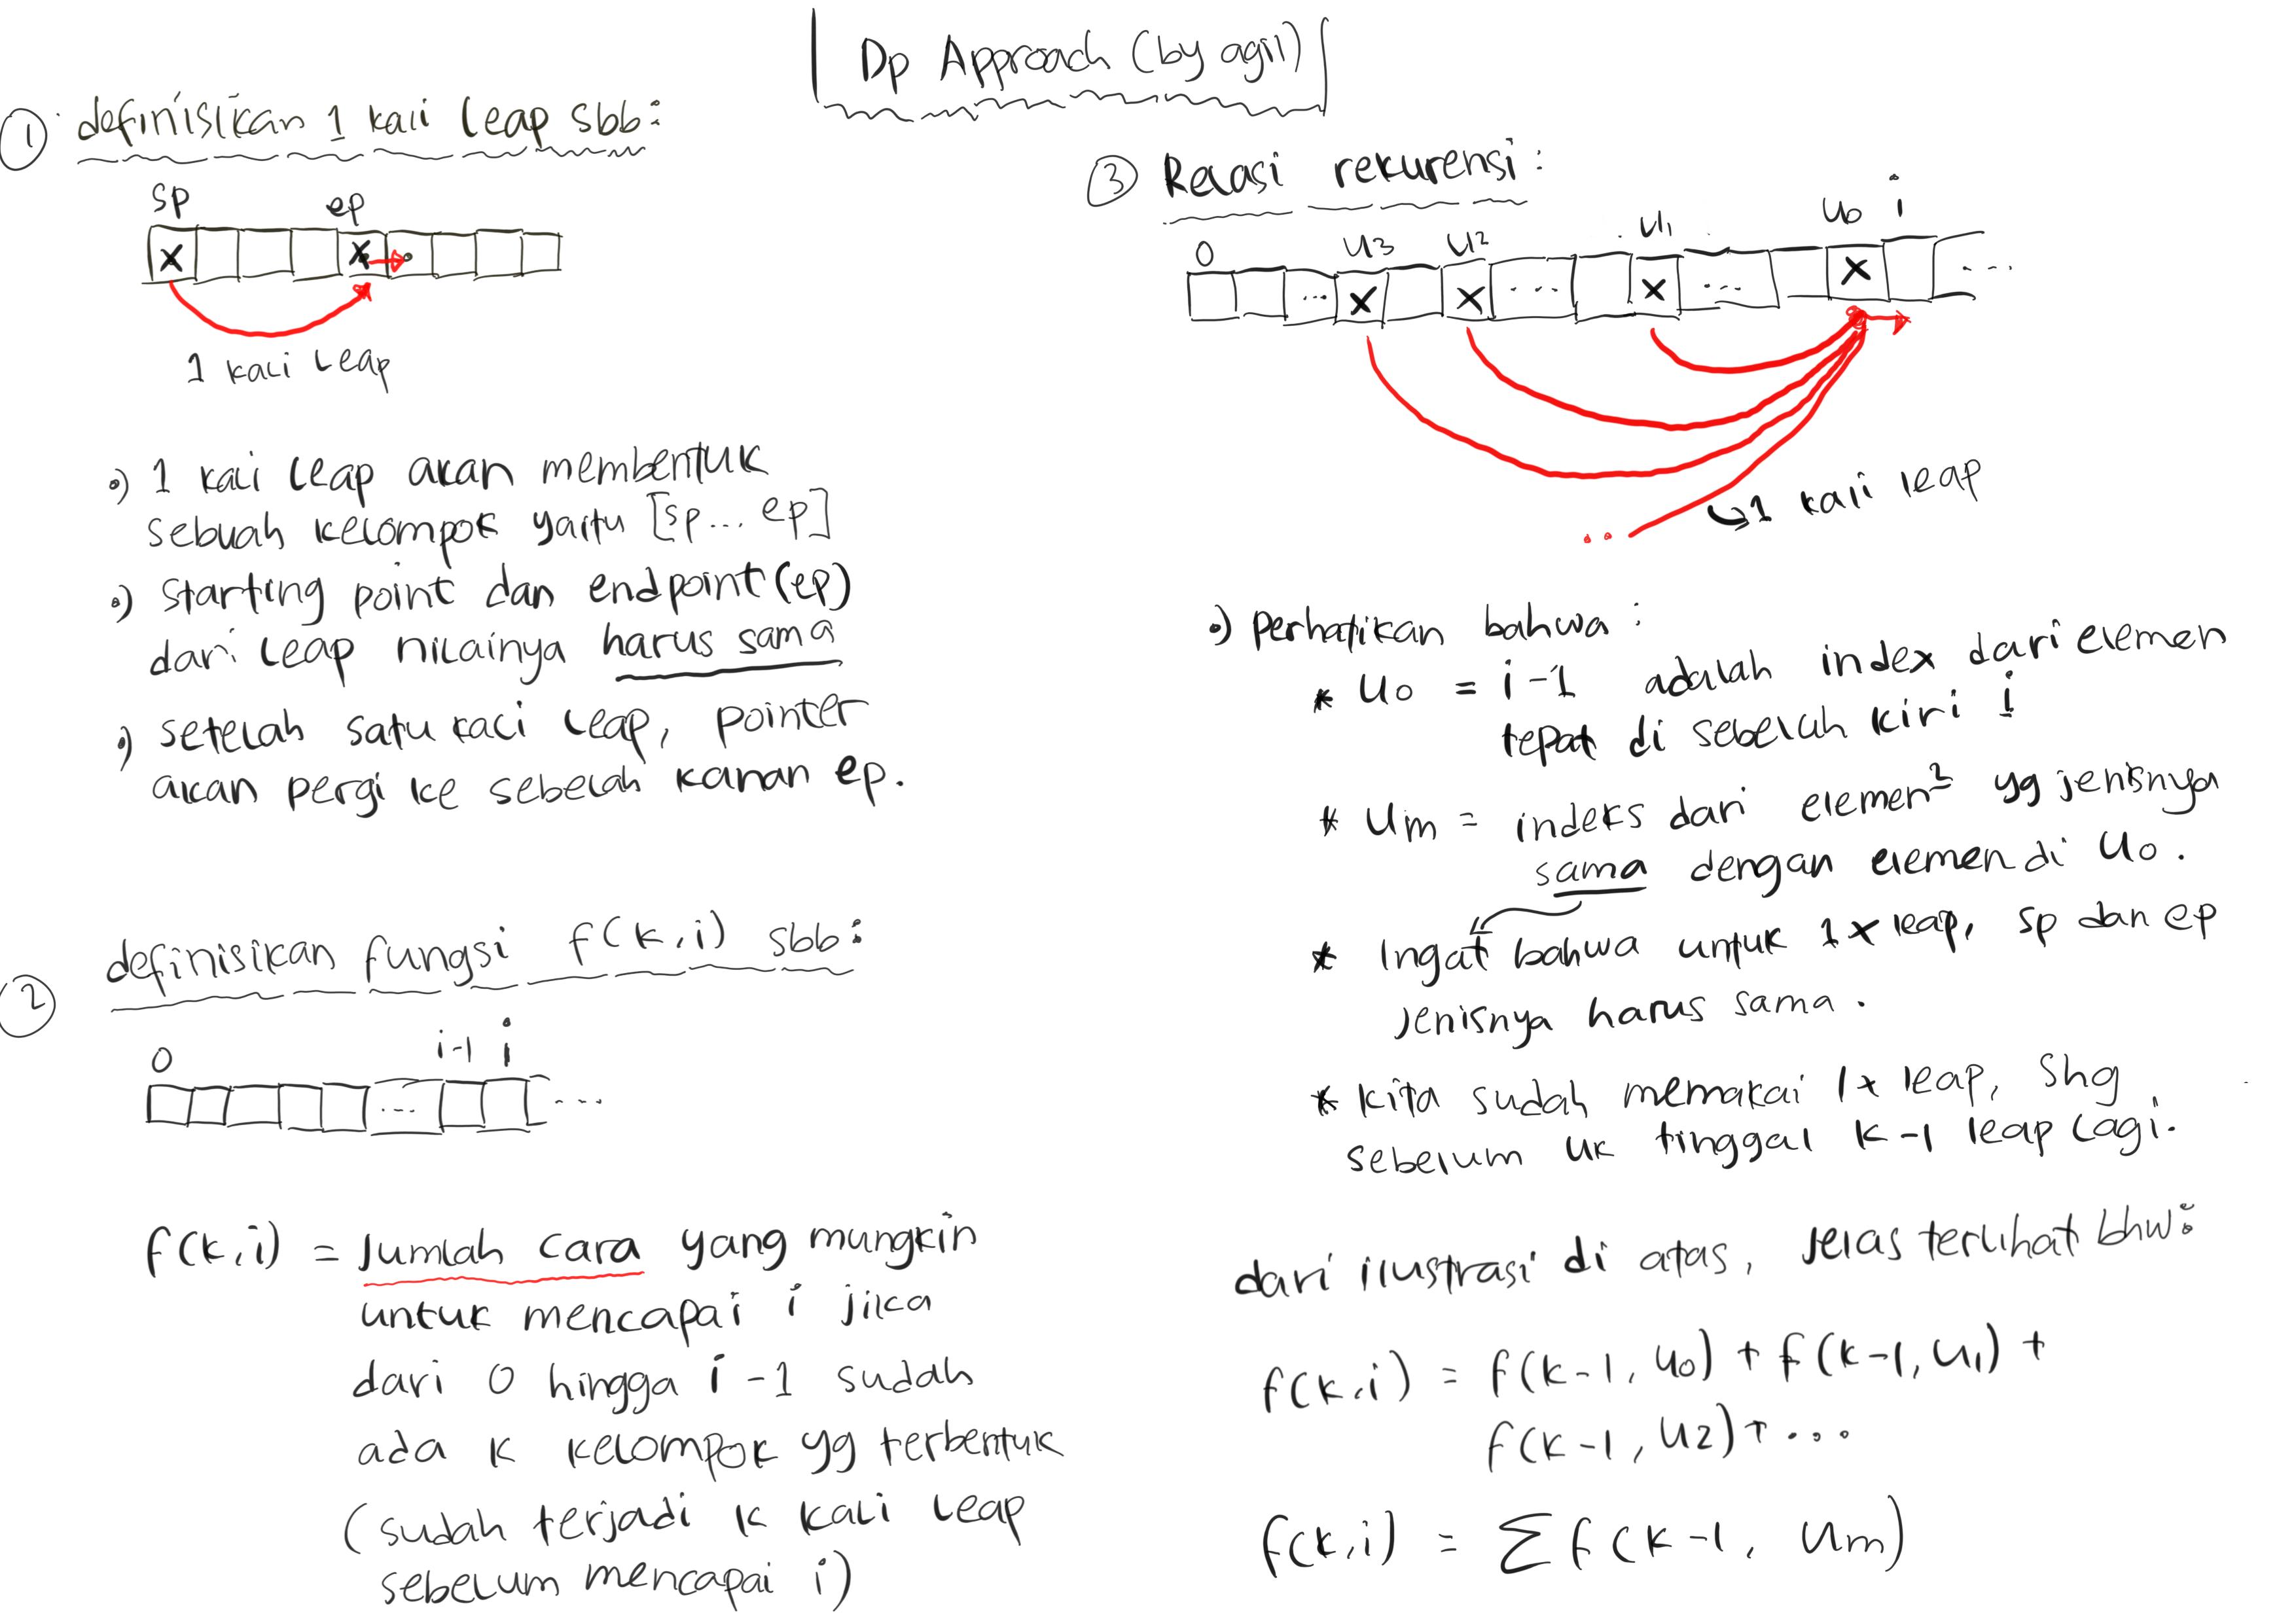 Dp Approach (by agil)
① definisikan 1 kali leap sbb:
sp ep
x x
1 kali leap
•) 1 kali leap akan membentuk
sebuah kelompok yaitu [sp... ep]
•) starting point dan endpoint (ep)
dari leap nilainya harus sama
•) setelah satu kali leap, pointer
akan pergi ke sebelah kanan ep.
② definisikan fungsi f(k,i) sbb:
0 i-1 i
... ...
f(k,i) = Jumlah cara yang mungkin
untuk mencapai i jika
dari 0 hingga i-1 sudah
ada k kelompok yg terbentuk
(sudah terjadi k kali leap
sebelum mencapai i)
③ Relasi rekurensi:
0 u3 u2 u1 u0 i
... x x ... x ... x ...
.. 1 kali leap
•) perhatikan bahwa:
* u0 = i-1 adalah index dari elemen
tepat di sebelah kiri i
* um = indeks dari elemen² yg jenisnya
sama dengan elemen di u0.
* Ingat bahwa untuk 1x leap, sp dan ep
jenisnya harus sama.
* kita sudah memakai 1x leap, shg
sebelum uk tinggal k-1 leap lagi.
dari ilustrasi di atas, jelas terlihat bhw:
f(k,i) = f(k-1, u0) + f(k-1, u1) +
f(k-1, u2) + ...
f(k,i) = Σ f(k-1, um)